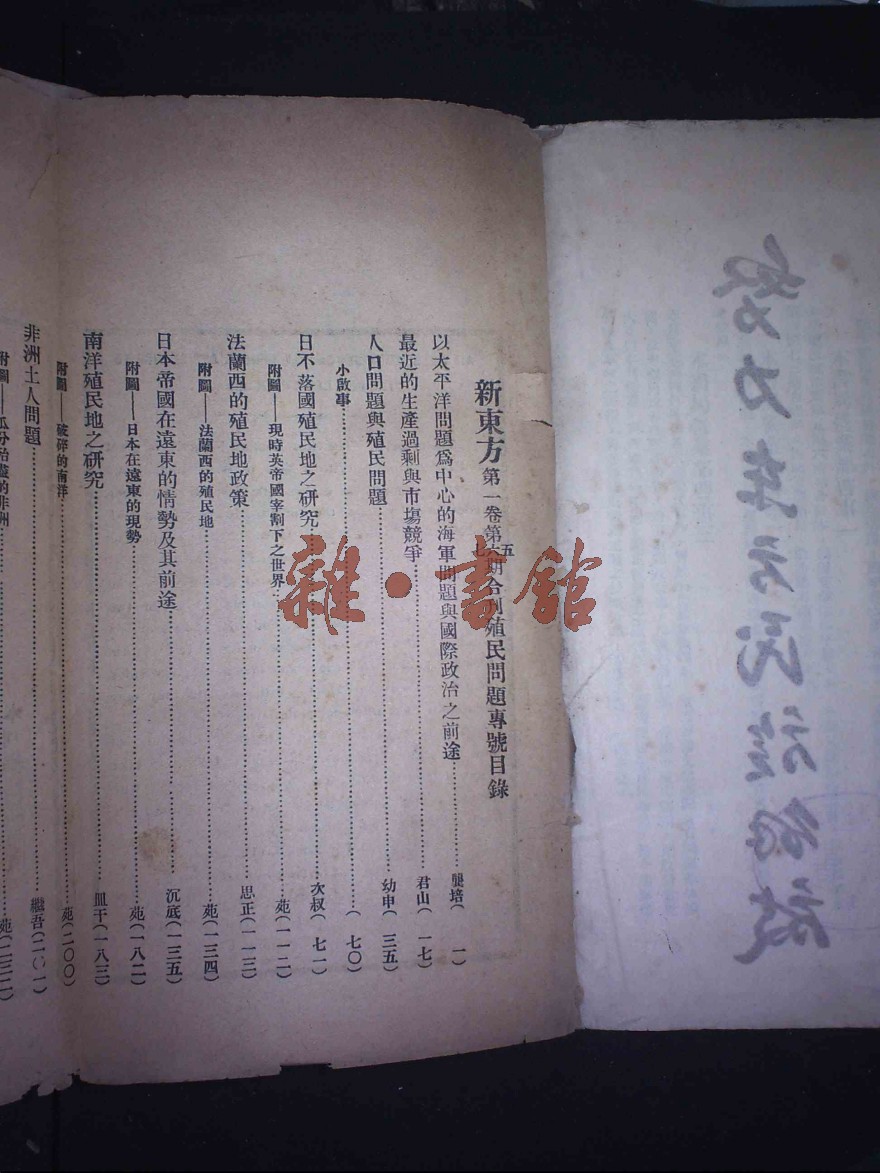 努力東方民族解放
新東方 第一卷第五六七期合刊殖民問題專號目錄
以太平洋問題爲中心的海軍問題與國際政治之前途……龔培(一)
最近的生產過剩與市場競爭……君山(一七)
人口問題與殖民問題……幼申(三五)
小啟事……(七〇)
日不落國殖民地之研究……次叔(七一)
附圖——現時英帝國宰割下之世界……苑(一一二)
法蘭西的殖民地政策……思正(一一三)
附圖——法蘭西的殖民地……苑(一三四)
日本帝國在遠東的情勢及其前途……沉底(一三五)
附圖——日本在遠東的現勢……苑(一八二)
南洋殖民地之研究……血干(一八三)
附圖——破碎的南洋……苑(二〇〇)
非洲土人問題……繼吾(二〇一)
附圖——瓜分殆盡的非洲……苑(二三二)
雜·書館